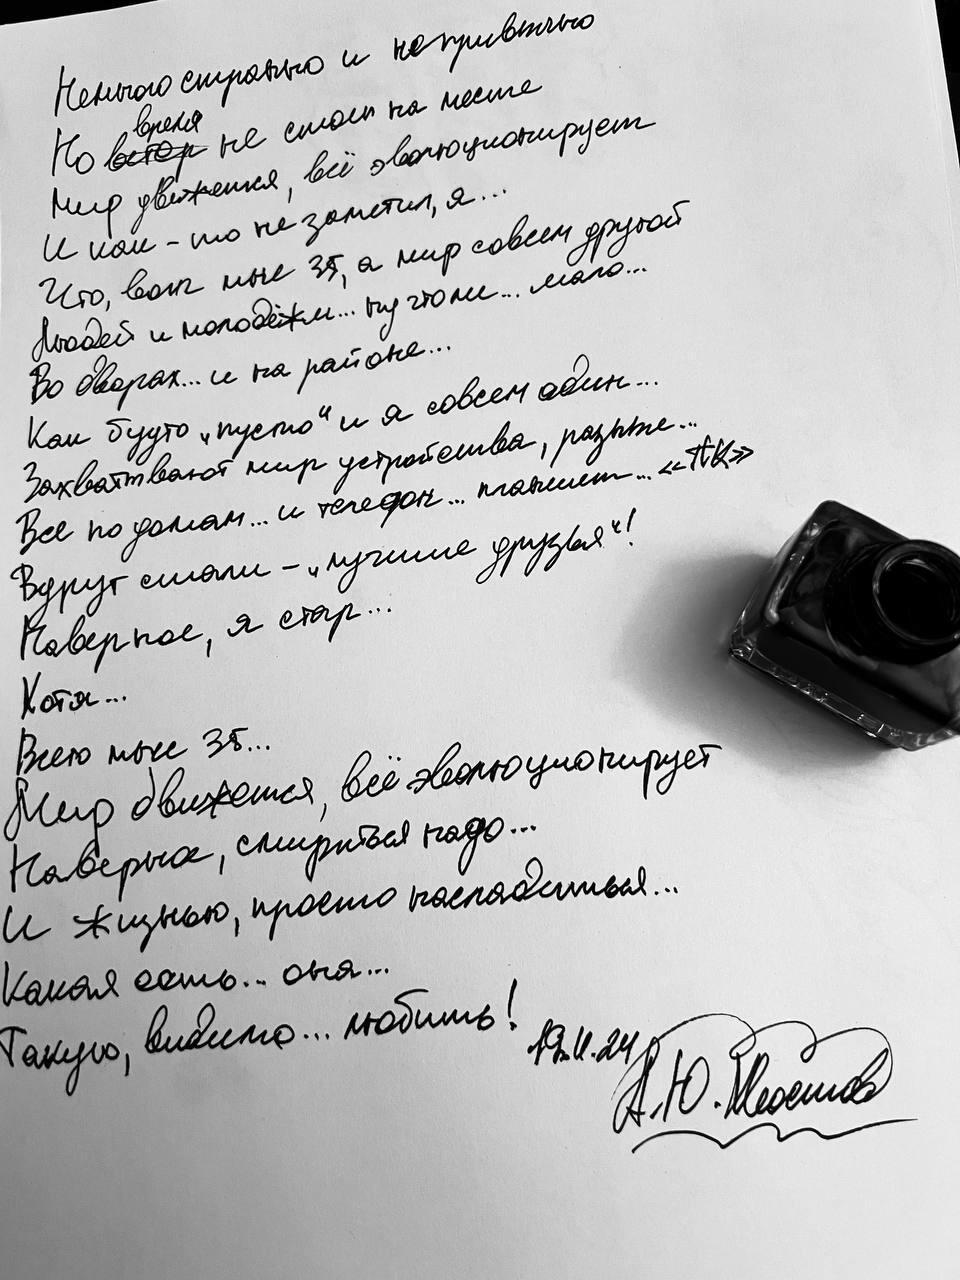 Немного странно и непривычно
время
Но не стоит на месте
Мир движется, всё эволюционирует
И как-то не заметил, я...
Что, вот мне 35, а мир совсем другой
Людей и молодёжи... ну что ли... мало...
Во дворах... и на районе...
Как будто „пусто“ и я совсем один...
Захватывают мир устройства, разные...
Все по домам... и телефон... планшет... «ПК»
Вдруг стали - „лучшие друзья“!
Наверное, я стар...
Хотя...
Всего мне 35...
Мир движется, всё эволюционирует
Наверное, смириться надо...
И жизнью, просто насладиться...
Какая есть... она...
Такую, видимо... любить!
19.11.24
А.Ю.